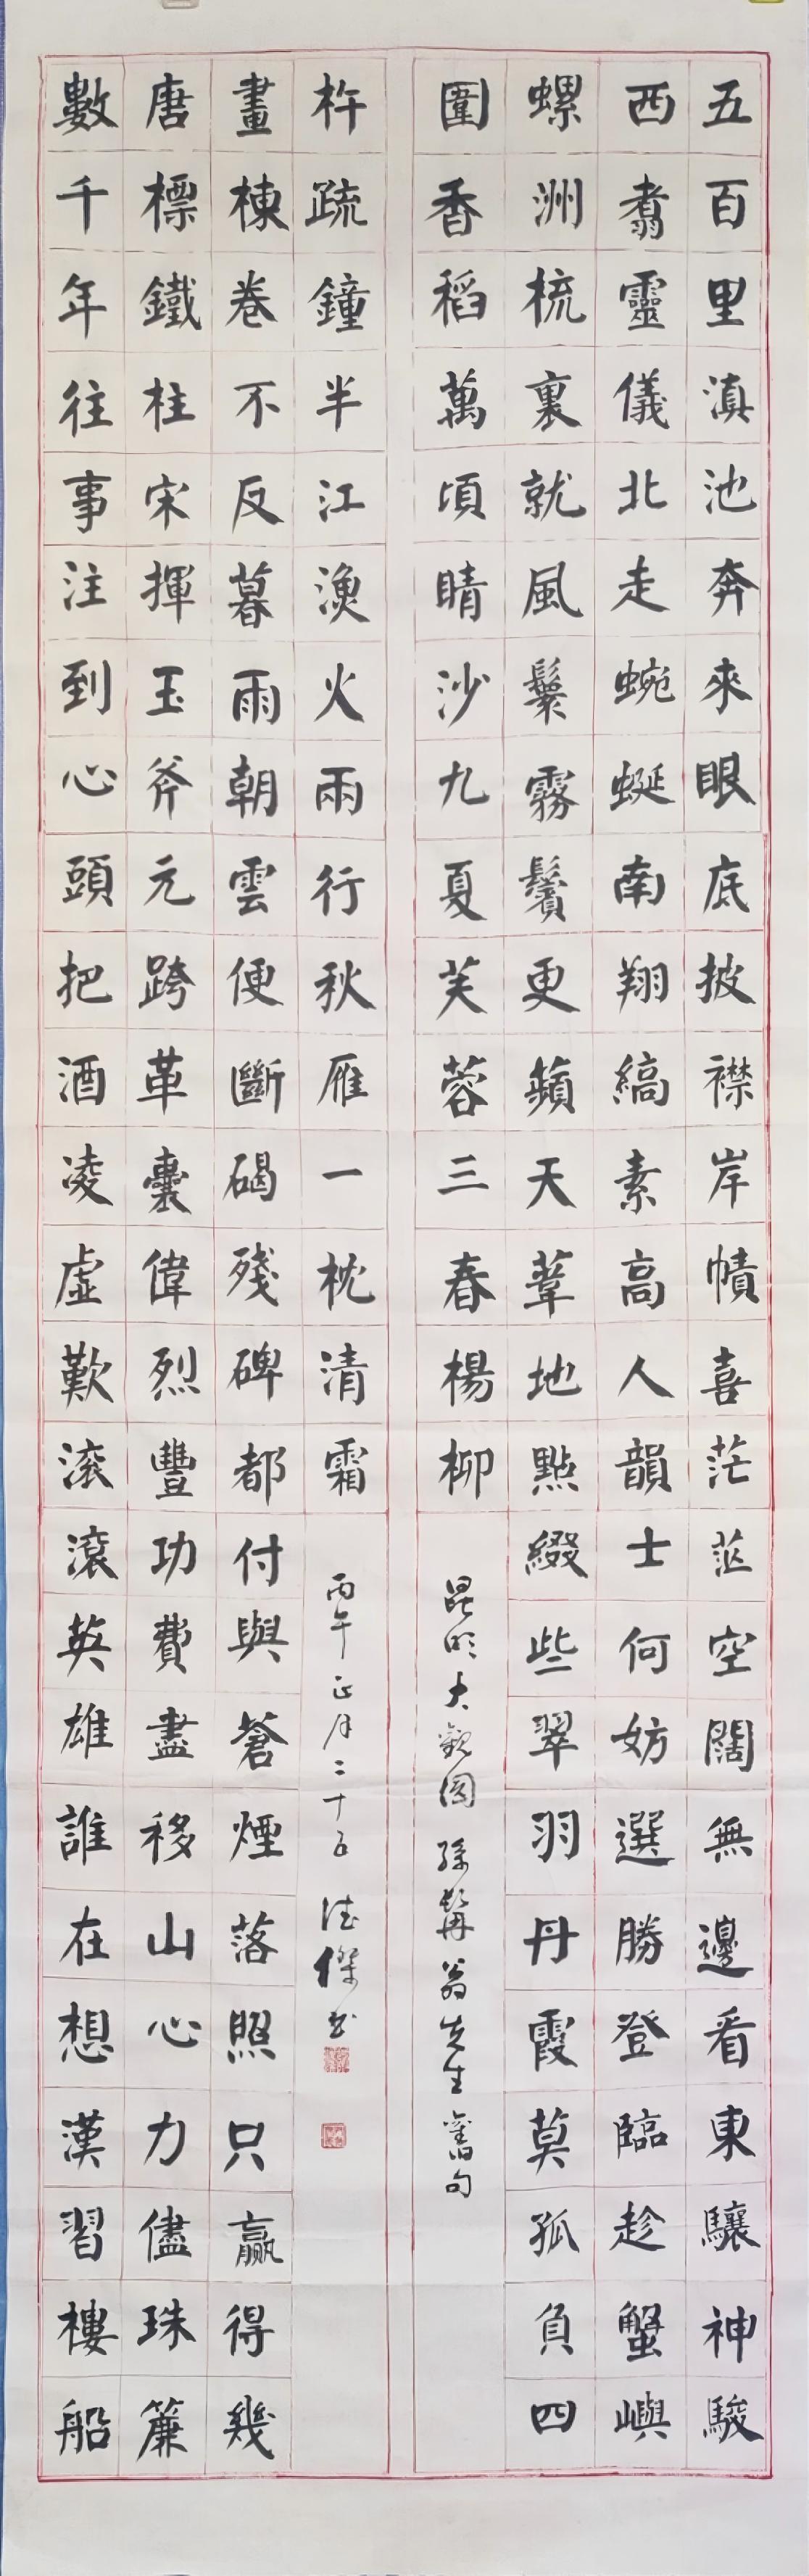 五百里滇池奔來眼底披襟岸幘喜茫茫空闊無邊看東驤神駿
西翥靈儀北走蜿蜒南翔縞素高人韻士何妨選勝登臨趁蟹嶼
螺洲梳裏就風鬟霧鬢更蘋天葦地點綴些翠羽丹霞莫孤負四
圍香稻萬頃睛沙九夏芙蓉三春楊柳
昆明大觀園 孫髯翁先生舊句
數千年往事注到心頭把酒凌虛歎滾滾英雄誰在想漢習樓船
唐標鐵柱宋揮玉斧元跨革囊偉烈豐功費盡移山心力儘珠簾
畫棟卷不反暮雨朝雲便斷碣殘碑都付與蒼煙落照只贏得幾
杵疏鐘半江漁火兩行秋雁一枕清霜
丙午正月二十五 德傑書